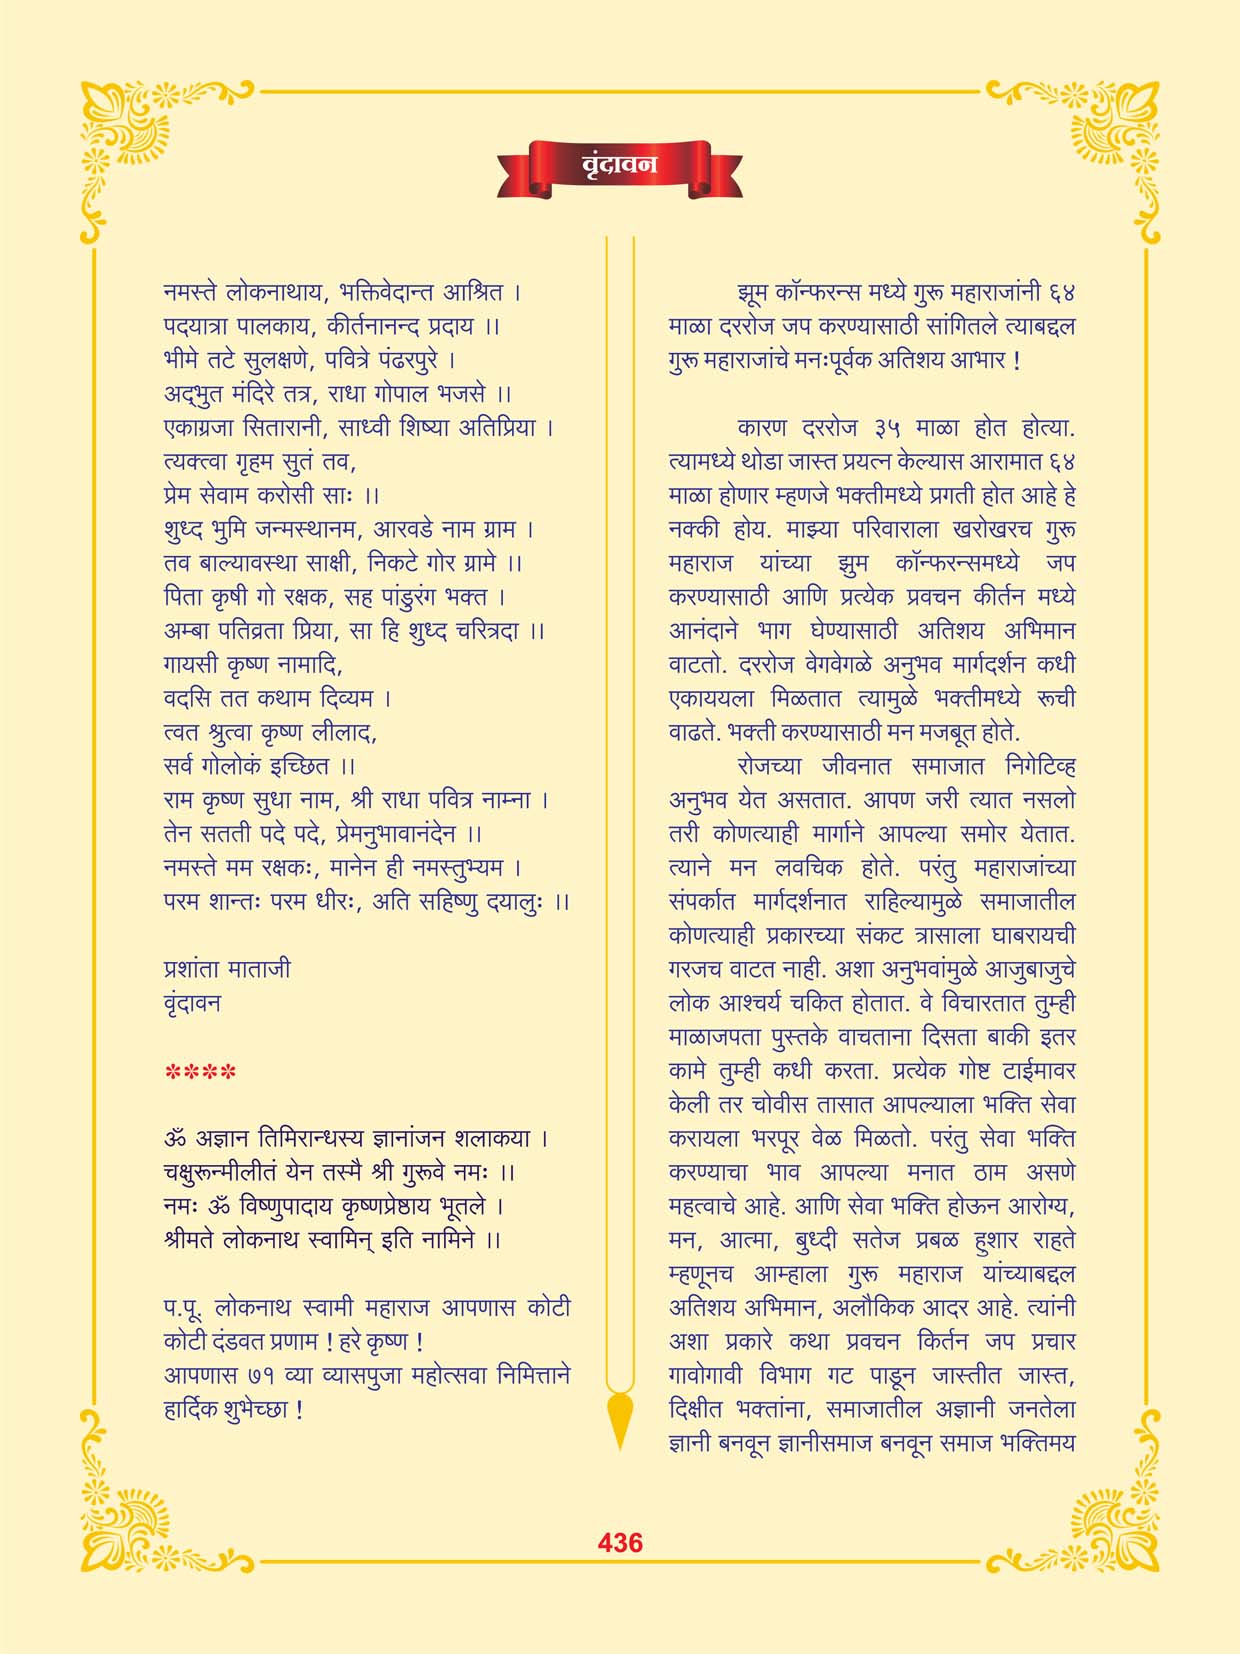 वृंदावन
नमस्ते लोकनाथाय, भक्तिवेदान्त आश्रित ।
पदयात्रा पालकाय, कीर्तनानन्द प्रदाय ।।
भीमे तटे सुलक्षणे, पवित्रे पंढरपुरे ।
अद्भुत मंदिरे तत्र, राधा गोपाल भजसे ।।
एकाग्रजा सितारानी, साध्वी शिष्या अतिप्रिया ।
त्यक्त्वा गृहम सुतं तव,
प्रेम सेवाम करोसी साः ।।
शुध्द भुमि जन्मस्थानम, आरवडे नाम ग्राम ।
तव बाल्यावस्था साक्षी, निकटे गोर ग्रामे ।।
पिता कृषी गो रक्षक, सह पांडुरंग भक्त ।
अम्बा पतिव्रता प्रिया, सा हि शुध्द चरित्रदा ।।
गायसी कृष्ण नामादि,
वदसि तत कथाम दिव्यम ।
त्वत श्रुत्वा कृष्ण लीलाद,
सर्व गोलोकं इच्छित ।।
राम कृष्ण सुधा नाम, श्री राधा पवित्र नाम्ना ।
तेन सतती पदे पदे, प्रेमनुभावानंदेन ।।
नमस्ते मम रक्षकः, मानेन ही नमस्तुभ्यम ।
परम शान्तः परम धीरः, अति सहिष्णु दयालुः ।।
प्रशांता माताजी
वृंदावन
****
ॐ अज्ञान तिमिरान्धस्य ज्ञानांजन शलाकया ।
चक्षुरून्मीलीतं येन तस्मै श्री गुरूवे नमः ।।
नमः ॐ विष्णुपादाय कृष्णप्रेष्ठाय भूतले ।
श्रीमते लोकनाथ स्वामिन् इति नामिने ।।
प.पू. लोकनाथ स्वामी महाराज आपणास कोटी
कोटी दंडवत प्रणाम ! हरे कृष्ण !
आपणास ७१ व्या व्यासपुजा महोत्सवा निमित्ताने
हार्दिक शुभेच्छा !
झूम कॉन्फरन्स मध्ये गुरू महाराजांनी ६४
माळा दररोज जप करण्यासाठी सांगितले त्याबद्दल
गुरू महाराजांचे मनःपूर्वक अतिशय आभार !
कारण दररोज ३५ माळा होत होत्या.
त्यामध्ये थोडा जास्त प्रयत्न केल्यास आरामात ६४
माळा होणार म्हणजे भक्तीमध्ये प्रगती होत आहे हे
नक्की होय. माझ्या परिवाराला खरोखरच गुरू
महाराज यांच्या झुम कॉन्फरन्समध्ये जप
करण्यासाठी आणि प्रत्येक प्रवचन कीर्तन मध्ये
आनंदाने भाग घेण्यासाठी अतिशय अभिमान
वाटतो. दररोज वेगवेगळे अनुभव मार्गदर्शन कधी
एकाययला मिळतात त्यामुळे भक्तीमध्ये रूची
वाढते. भक्ती करण्यासाठी मन मजबूत होते.
रोजच्या जीवनात समाजात निगेटिव्ह
अनुभव येत असतात. आपण जरी त्यात नसलो
तरी कोणत्याही मार्गाने आपल्या समोर येतात.
त्याने मन लवचिक होते. परंतु महाराजांच्या
संपर्कात मार्गदर्शनात राहिल्यामुळे समाजातील
कोणत्याही प्रकारच्या संकट त्रासाला घाबरायची
गरजच वाटत नाही. अशा अनुभवांमुळे आजुबाजुचे
लोक आश्चर्य चकित होतात. वे विचारतात तुम्ही
माळाजपता पुस्तके वाचताना दिसता बाकी इतर
कामे तुम्ही कधी करता. प्रत्येक गोष्ट टाईमावर
केली तर चोवीस तासात आपल्याला भक्ति सेवा
करायला भरपूर वेळ मिळतो. परंतु सेवा भक्ति
करण्याचा भाव आपल्या मनात ठाम असणे
महत्वाचे आहे. आणि सेवा भक्ति होऊन आरोग्य,
मन, आत्मा, बुध्दी सतेज प्रबळ हुशार राहते
म्हणूनच आम्हाला गुरू महाराज यांच्याबद्दल
अतिशय अभिमान, अलौकिक आदर आहे. त्यांनी
अशा प्रकारे कथा प्रवचन किर्तन जप प्रचार
गावोगावी विभाग गट पाडून जास्तीत जास्त,
दिक्षीत भक्तांना, समाजातील अज्ञानी जनतेला
ज्ञानी बनवून ज्ञानीसमाज बनवून समाज भक्तिमय
436